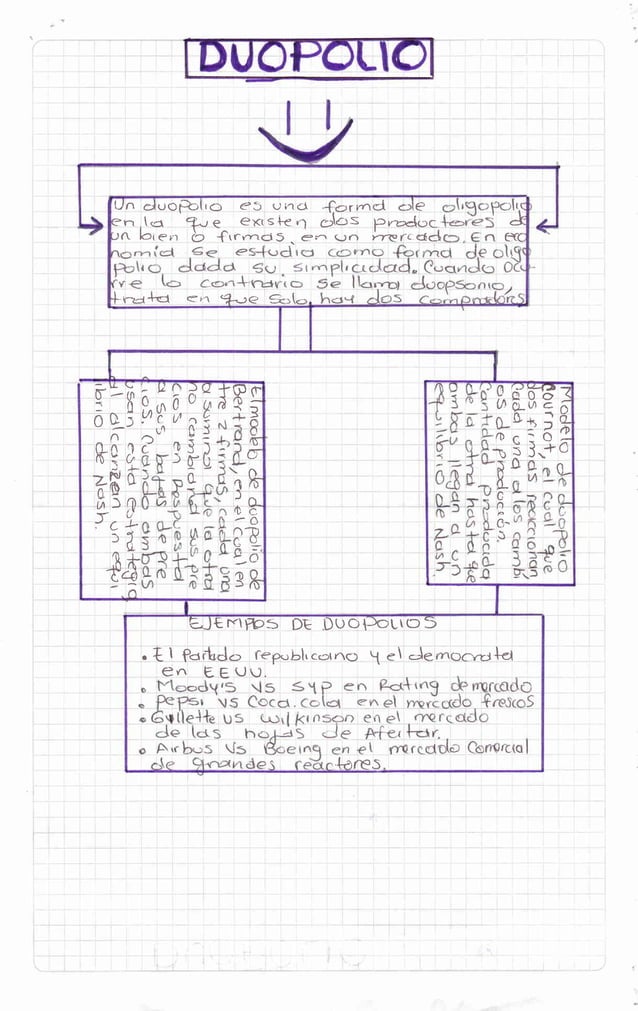 DUOPOLIO
Un duopolio es una forma de oligopolio
en la que existen dos productores de
un bien o firmas, en un mercado. En eco
nomía se estudia como forma de oligo
polio dada su simplicidad. Cuando ocu-
rre lo contrario se llama duopsonio,
trata en que solo hay dos compradores
El modelo de duopolio de
Bertrand, en el cual en
tre 2 firmas, cada una
asumirá que la otra
no cambiará sus pre
cios en respuesta
a sus bajas de pre
cios. Cuando ambas
usan esta estrategia
al alcanzen un equi
librio de Nash.
Modelo de duopolio
Cournot, el cual que
dos firmas reaccionan,
cada una a los camb,
os de producción.
Cantidad producida
de la otra hasta que
ambas llegan a un
equilibrio de Nash.
EJEMPLOS DE DUOPOLIOS
• El Partido republicano y el democrata
en EEUU.
• Moody's Vs Syp en Rating de mercado
• Pepsi vs Coca.cola en el mercado frescos
• Gyllette vs Wilkinson en el mercado
de las hojas de Afeitar.
• Airbus Vs Boeing en el mercado Comercial
de grandes reactores.